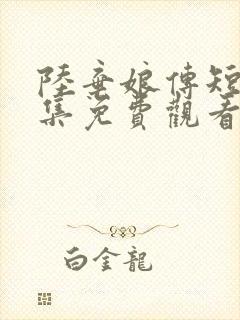 陸棄娘傳短
集免費觀看
白金龍